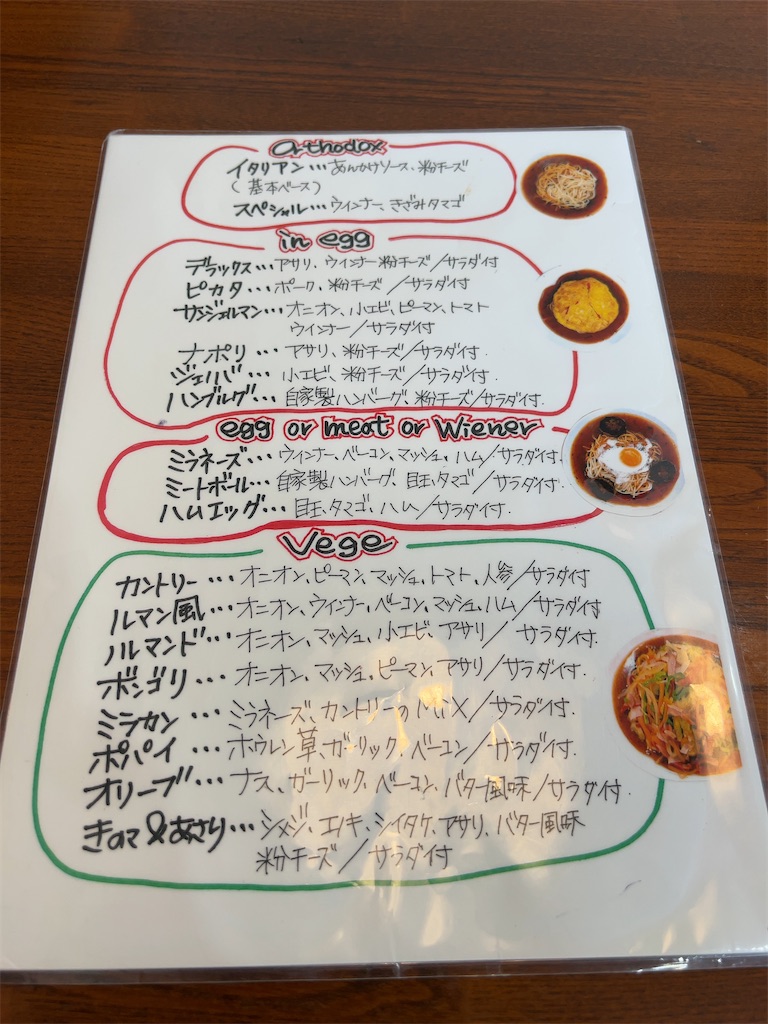 Orthodox
イタリアン…あんかけソース、粉チーズ
(基本ベース)
スペシャル…ウインナー、きざみタマゴ
in egg
デラックス…アサリ、ウィンナー粉チーズ/サラダ付
ピカタ…ポーク、粉チーズ/サラダ付
サンジェルマン…オニオン、小エビ、ピーマン、トマト
ウインナー/サラダ付
ナポリ…アサリ、粉チーズ/サラダ付.
ジェノバ…小エビ、粉チーズ/サラダ付.
ハンブルグ…自家製ハンバーグ、粉チーズ/サラダ付.
egg or meat or Wiener
ミラネーズ…ウィンナー、ベーコン、マッシュ、ハム/サラダ付.
ミートボール…自家製ハンバーグ、目玉、タマゴ/サラダ付.
ハムエッグ…目玉、タマゴ、ハム/サラダ付.
Vege
カントリー…オニオン、ピーマン、マッシュ、トマト、人参/サラダ付
ノルマン風…オニオン、ウィンナー、ベーコン、マッシュ、ハム/サラダ付
ノルマンド…オニオン、マッシュ、小エビ、アサリ/サラダ付.
ボンゴリ…オニオン、マッシュ、ピーマン、アサリ/サラダ付.
ミラカン…ミラネーズ、カントリーのMiX/サラダ付.
ポパイ…ホウレン草、ガーリック、ベーコン/サラダ付.
オリーブ…ナス、ガーリック、ベーコン、バター風味/サラダ付.
きのこ&あさり…シメジ、エノキ、シイタケ、アサリ、バター風味
粉チーズ/サラダ付